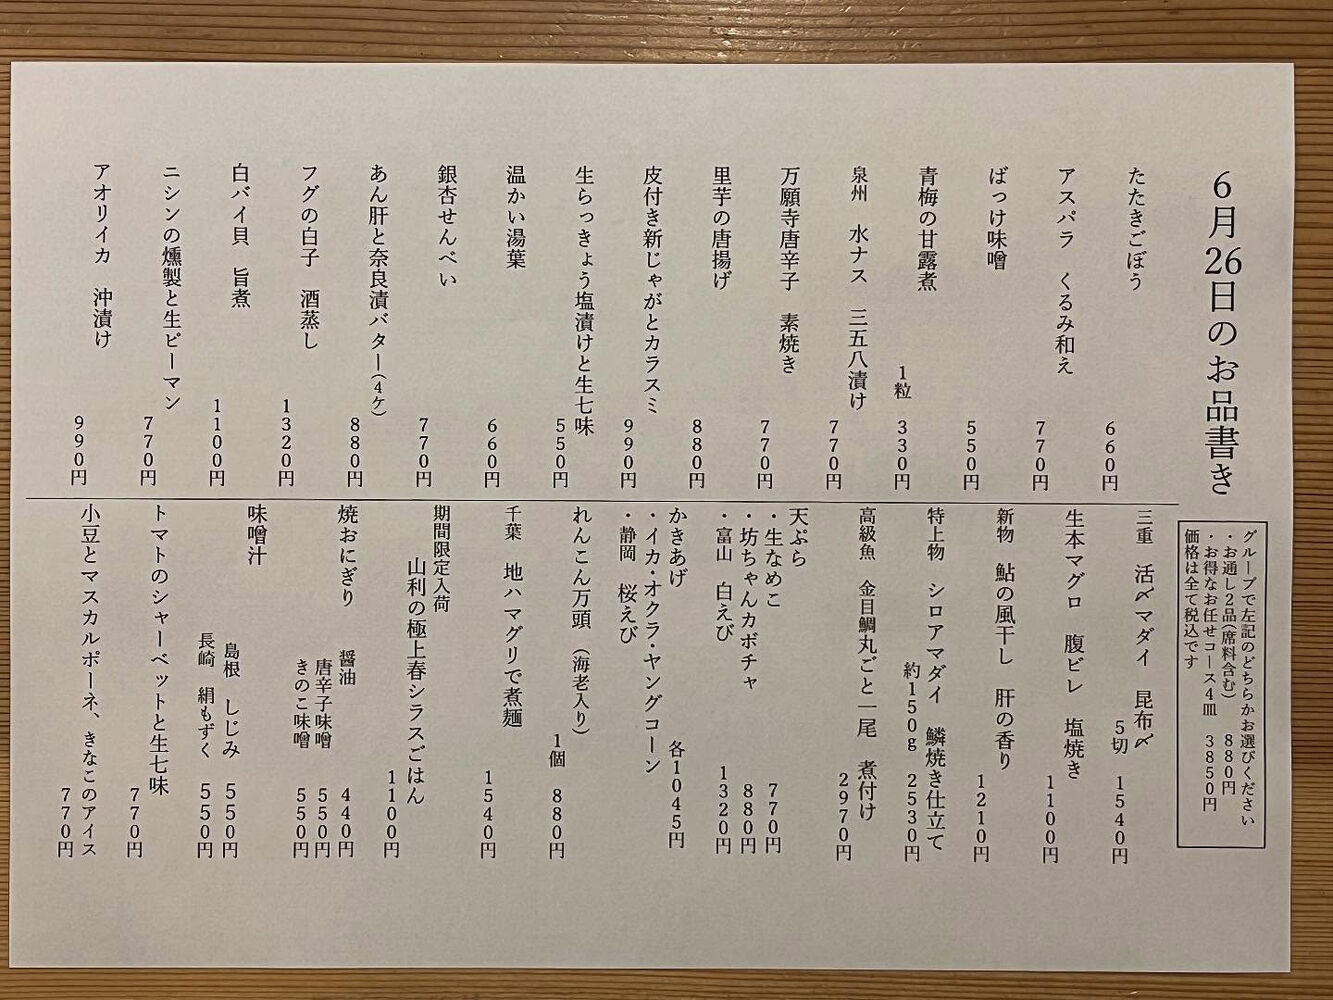 6月26日のお品書き
グループで左記のどちらかお選びください
・お通し2品(席料含む) 880円
・お得なお任せコース4皿 3850円
価格は全て税込です
たたきごぼう 660円
アスパラ くるみ和え 770円
ばっけ味噌 550円
青梅の甘露煮 1粒 330円
泉州 水ナス 三五八漬け 770円
万願寺唐辛子 素焼き 770円
里芋の唐揚げ 880円
皮付き新じゃがとカラスミ 990円
生らっきょう塩漬けと生七味 550円
温かい湯葉 660円
銀杏せんべい 770円
あん肝と奈良漬バター(4ケ) 880円
フグの白子 酒蒸し 1320円
白バイ貝 旨煮 1100円
ニシンの燻製と生ピーマン 770円
アオリイカ 沖漬け 990円
三重 活〆マダイ 昆布〆
5切 1540円
生本マグロ 腹ビレ 塩焼き 1100円
新物 鮎の風干し 肝の香り 1210円
特上物 シロアマダイ 鱗焼き仕立て
約150g 2530円
高級魚 金目鯛丸ごと一尾 煮付け 2970円
天ぷら
・生なめこ 770円
・坊ちゃんカボチャ 880円
・富山 白えび 1320円
かきあげ 各1045円
・イカ・オクラ・ヤングコーン
・静岡 桜えび
れんこん万頭(海老入り)
1個 880円
千葉 地ハマグリで煮麺 1540円
期間限定入荷
山利の極上春シラスごはん 1100円
焼おにぎり 醤油 440円
唐辛子味噌 550円
きのこ味噌 550円
味噌汁
島根 しじみ 550円
長崎 絹もずく 550円
トマトのシャーベットと生七味 770円
小豆とマスカルポーネ、きなこのアイス 770円